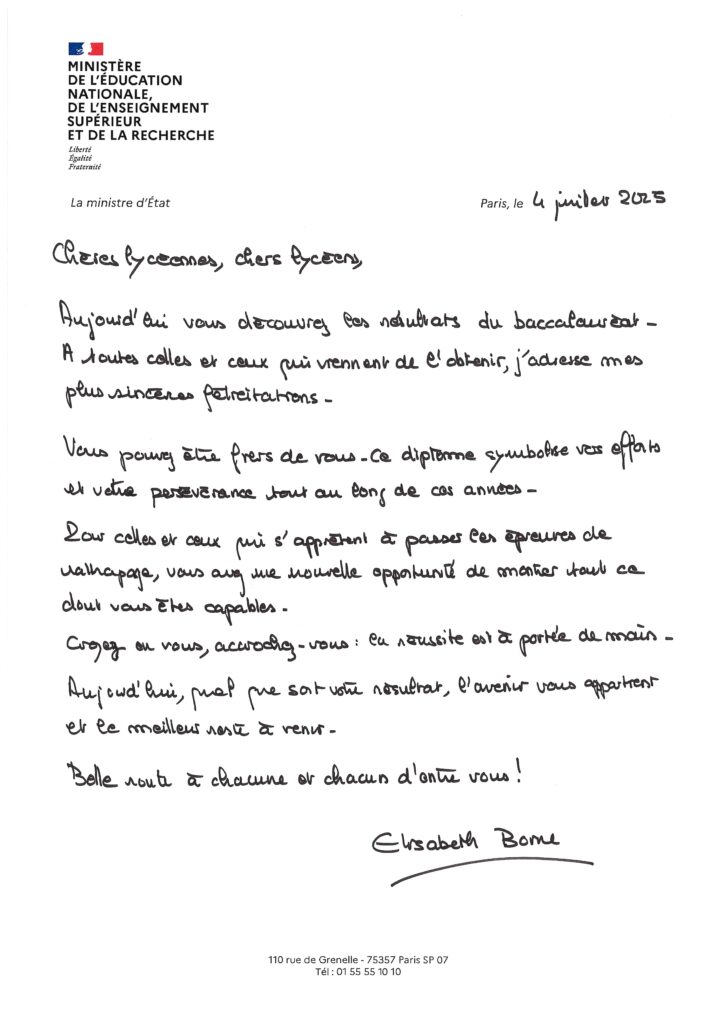 MINISTÈRE
DE L'ÉDUCATION
NATIONALE,
DE L'ENSEIGNEMENT
SUPÉRIEUR
ET DE LA RECHERCHE
Liberté
Égalité
Fraternité
La ministre d'État
Paris, le 4 juillet 2025
Chères lycéennes, chers lycéens,
Aujourd'hui vous découvrez les résultats du baccalauréat -
A toutes celles et ceux qui viennent de l'obtenir, j'adresse mes
plus sincères félicitations -
Vous pouvez être fiers de vous - Ce diplôme symbolise vos efforts
et votre persévérance tout au long de ces années -
Pour celles et ceux qui s'apprêtent à passer les épreuves de
rattrapage, vous avez une nouvelle opportunité de montrer tout ce
dont vous êtes capables -
Croyez en vous, accrochez-vous : la réussite est à portée de main -
Aujourd'hui, quel que soit votre résultat, l'avenir vous appartient
et le meilleur reste à venir -
Belle route à chacune et chacun d'entre vous !
Elisabeth Borne
110 rue de Grenelle - 75357 Paris SP 07
Tél : 01 55 55 10 10